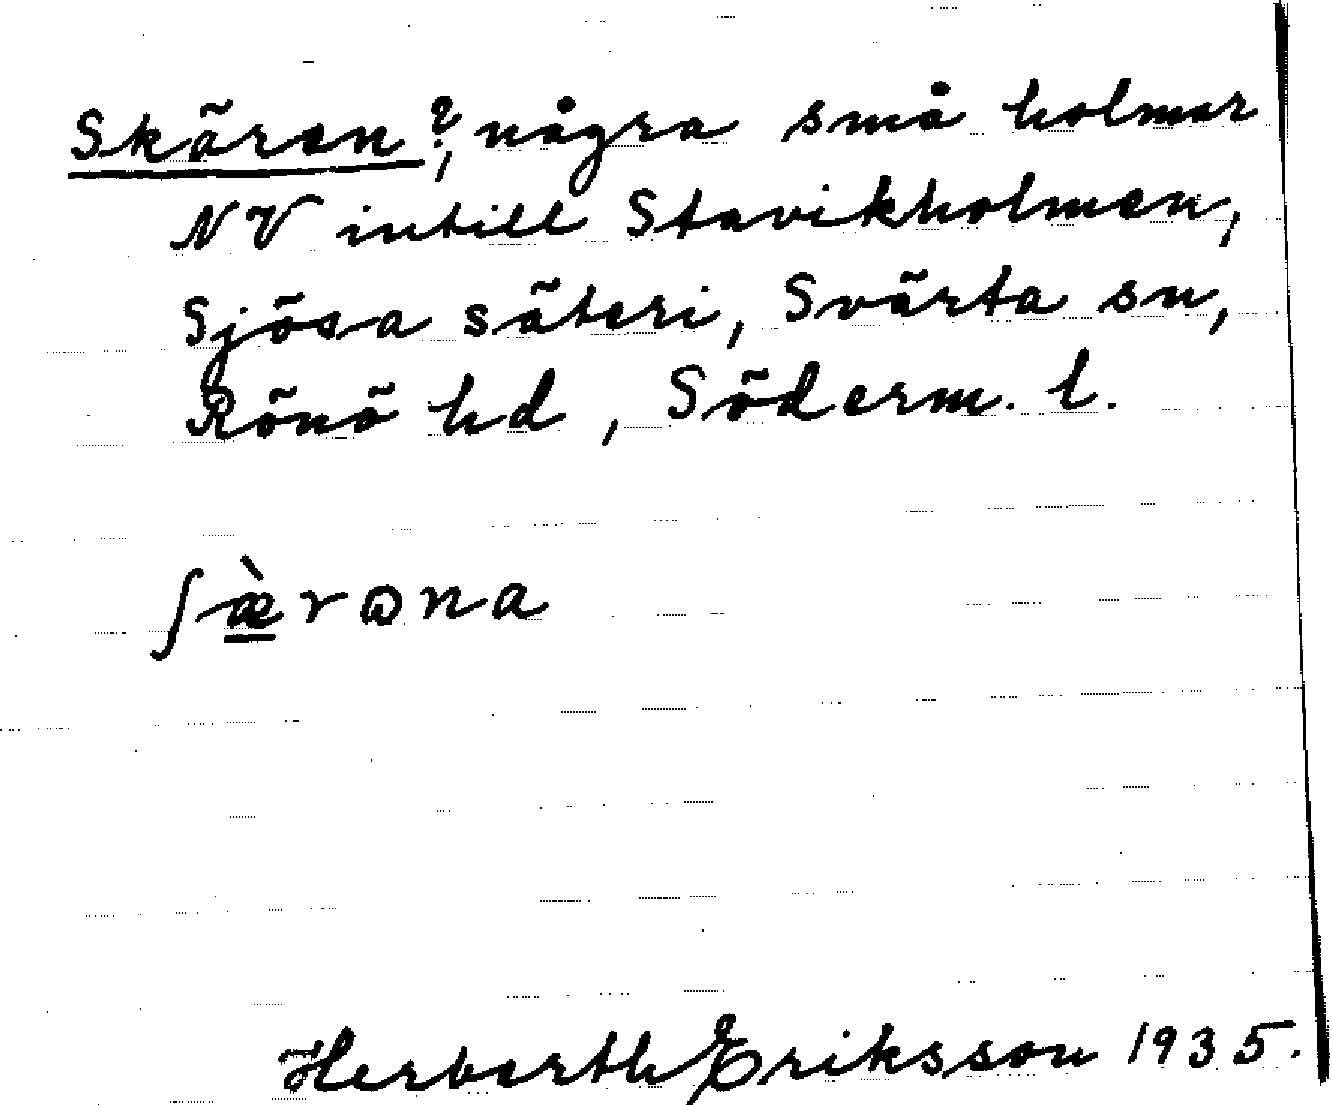 Skären?, några små holmar
NV intill Stavikholmen,
Sjösa säteri, Svärta sn,
Rönö hd, Söderm. l.
ʃæ̀rɷna
Herberth Eriksson 1935.